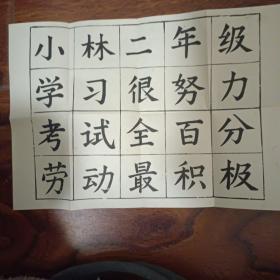 小林二年级
学习很努力
考试全百分
劳动最积极